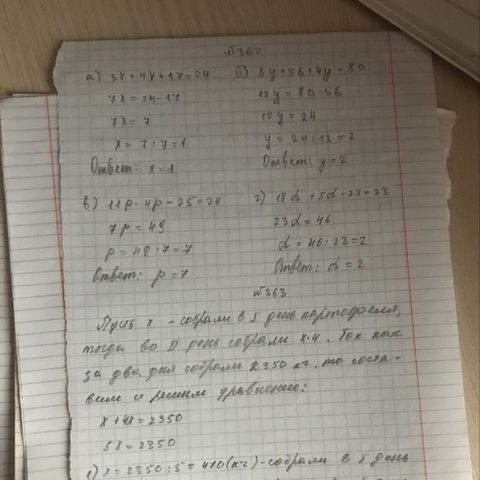 №362
а) 3x+4x+17=24
7x=24-17
7x=7
x=7:7=1
Ответ: x=1
б) 8y+56+4y=80
12y=80-56
12y=24
y=24:12=2
Ответ: y=2
в) 11p-4p-25=24
7p=49
p=49:7=7
Ответ: p=7
г) 18d+5d-23=23
23d=46
d=46:23=2
Ответ: d=2
№363
Пусть x - собрали в I день картофеля,
тогда во II день собрали x·4. Так как
за два дня собрали 2350 кг, то соста-
вим и решим уравнение:
x+4x=2350
5x=2350
1) x=2350:5=470(кг)-собрали в I день